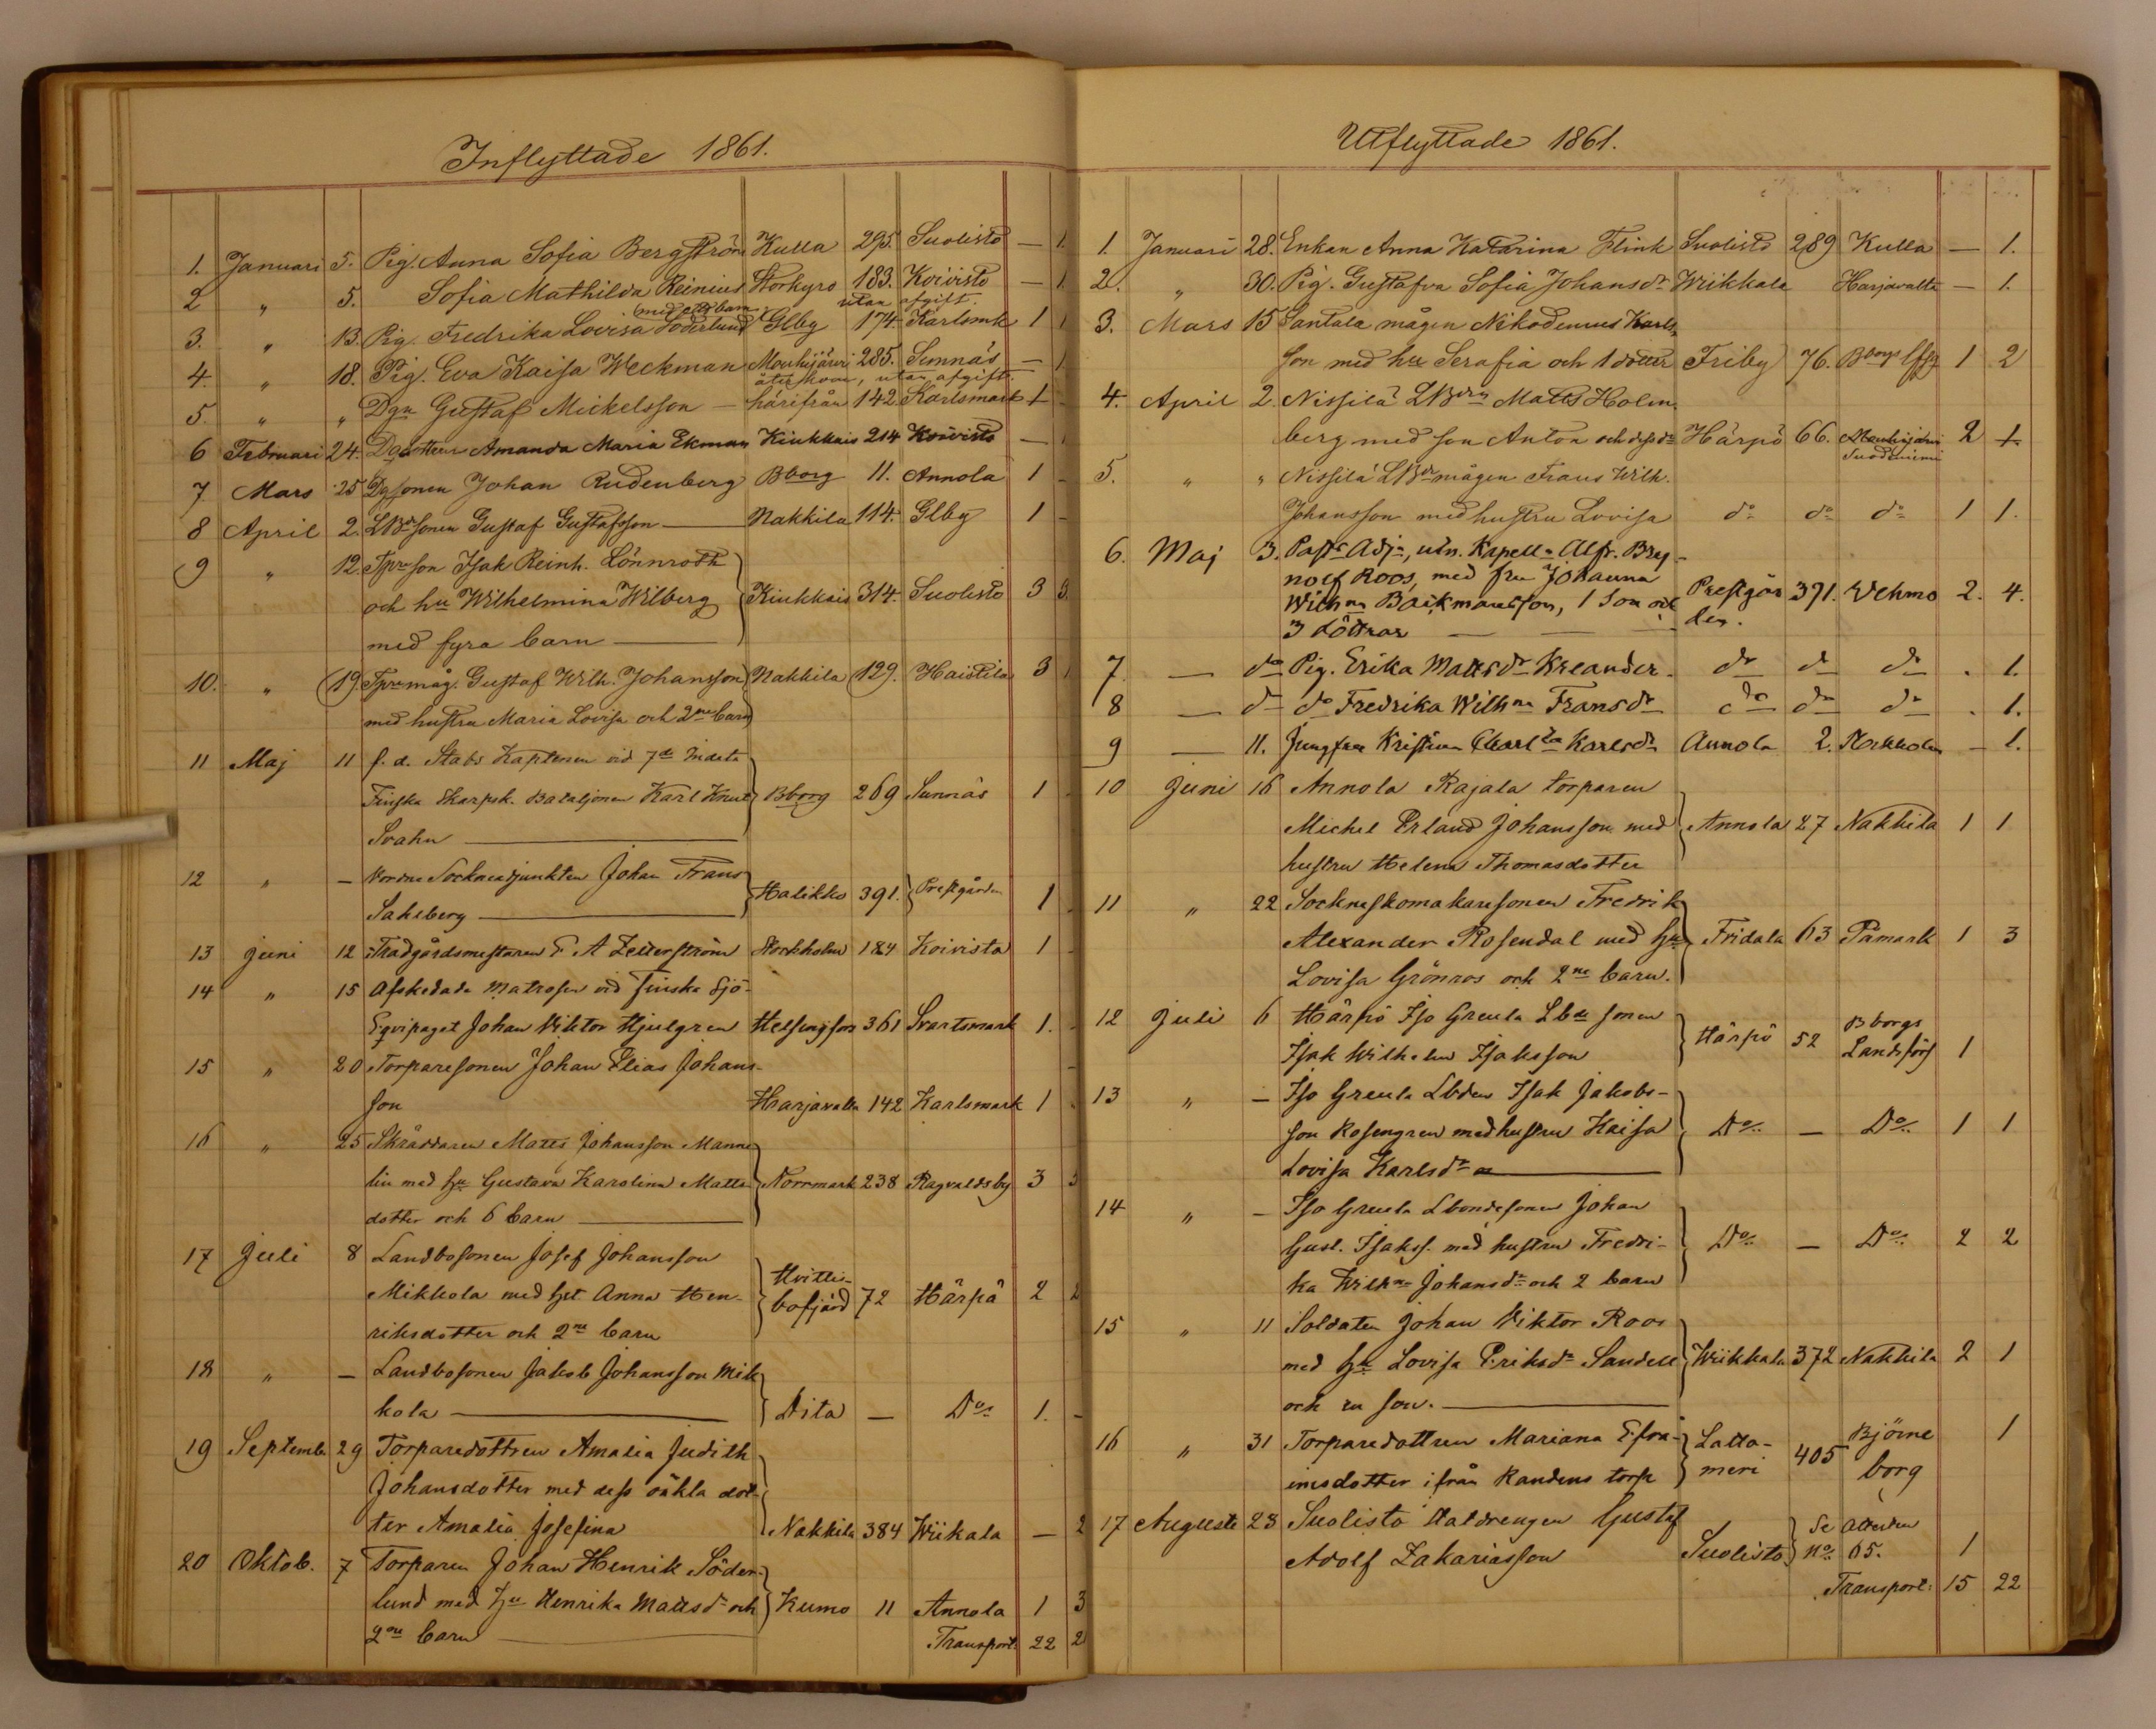 Inflyttade 1861.
1. Januari 5. Pig. Anna Sofia Bergström Kulla 295. Suolisto — 1.
2 " 5. Sofia Mathilda Reinius Storkyro 183. Koivisto — 1
med ett barn utan afgift.
3. " 13. Pig. Fredrika Lovisa Söderlund Glby 174. Karlsmk 1 1
4. " 18. Pig. Eva Kaisa Weckman Mouhijärvi 285. Sunnäs — 1
återkom, utan afgift.
5. " " Dgn Gustaf Mickelsson — härifrån 142. Karlsmark 1 -
6 Februari 24. Dgdottern Amanda Maria Ekman Kiukkais 214 Koivisto — 1
7 Mars 25 Dgsonen Johan Rudenberg Bborg 11. Annola 1 -
8 April 2. LBdsonen Gustaf Gustafsson — Nakkila 114. Glby 1 -
9 " 12. Tprson Isak Reinh. Lönnroth
och hu Wilhelmina Wilberg Kiukkais 314. Suolisto 3 3
med fyra barn —
10. " 19. Tpremåg. Gustaf Wilh. Johansson Nakkila 129. Haistila 3 1
med hustru Maria Lovisa och 2ne barn
11 Maj 11 f. d. Stabs Kaptenen vid 7de Indelta
Finska Skarpsk. Bataljonen Karl Knut Bborg 269 Sunnäs 1 -
Svahn —
12 " — Vordne Sockneadjunkten Johan Frans
Sahlberg — Halikko 391. Prestgården 1 -
13 Juni 12 Trädgårdsmästaren F. A Zetterström Stockholm 184 Koivisto 1 -
14 " 15 Afskedade Matrosen vid Finska Sjö-
Eqvipaget Johan Viktor Hjulgren Helsingfors 361 Svartsmark 1. -
15 " 20 Torparesonen Johan Elias Johans-
son Harjavalta 142 Karlsmark 1 -
16 " 25 Skräddaren Matts Johansson Manne
lin med hu Gustava Karolina Matts Norrmark 238 Ragvaldsby 3 5
dotter och 6 barn —
17 Juli 8 Landbosonen Josef Johansson
Mikkola med hst. Anna Hen- Hvittis-bofjärd 72 Härpö 2 2
riksdotter och 2ne barn
18 " — Landbosonen Jakob Johansson Mik
kola — Dito — Do 1. -
19 Septemb. 29 Torparedottren Amalia Judith
Johansdotter med dess oäkta dot-
ter Amalia Josefina Nakkila 384 Wiikala — 2
20 Oktob. 7 Torparen Johan Henrik Söder-
lund med hu Henrika Mattsdr och Kumo 11 Annola 1 3
2ne barn —
Transport: 22 2
Utflyttade 1861.
1. Januari 28. Enkan Anna Katarina Flink Suolisto 289 Kulla — 1.
2. " 30. Pig. Gustafva Sofia Johansdr Wiikkala Harjavalta — 1.
3. Mars 15 Santala mågen Nikodemus Karls
son med hu Serafia och 1 dotter Friby 76. Bborgs lfsg 1 2
4. April 2. Nissilä LBdn Matts Holm-
berg med son Anton och dess dr Härpö 66. Mouhijärvi Suodeniemi 2 1
5. " " Nissilä LBdmågen Frans Wilh.
Johansson med hustru Lovisa do do do 1 1.
6. Maj 3. Pastr Adj., utn. Kapelln Alfr. Bryn-
nolf Roos, med fru Johanna
Wilhna Bäckmansson, 1 Son och Prestgården. 391. Wehmo 2. 4.
3 döttrar — — —
7. — do Pig. Erika Mattsdr Kreander. do do do . 1.
8 — do do Fredrika Wilhna Fransdr do do do . 1.
9 — 11. Jungfrun Kristina Charltta Karlsdr Annola 2. Stockholm — 1.
10 Juni 16 Annola Rajala torparen
Michel Erland Johansson med Annola 27 Nakkila 1 1
hustru Helena Thomasdotter
11 " 22 Sockneskomakaresonen Fredrik
Alexander Rosendal med hu Fridala 63 Påmark 1 3
Lovisa Grönros och 2ne barn.
12 Juli 6 Härpö Iso Greula Lbde sonen
Isak Wilhelm Isaksson Härpö 52 Bborgs Landsförs 1
13 " — Iso Greula Lbden Isak Jakobs-
son Rosengren med hustru Kaisa Do — Do 1 1
Lovisa Karlsdr —
14 " — Iso Greula Lbondesonen Johan
Gust. Isakss. med hustru Fredri- Do — Do 2 2
ka Wilhna Johansdr och 2 barn
15 " 11 Soldaten Johan Viktor Roos
med hu Lovisa Eriksdr Sandell Wiikkala 372 Nakkila 2 1
och en son. —
16 " 31 Torparedottren Mariana Efra-
imsdotter ifrån Randens torp Lattomeri 405 Björneborg 1
17 Augusti 28 Suolisto Staldrengen Gustaf
Adolf Zakariasson Suolisto Se Attesten No 65. 1
Transport: 15 22